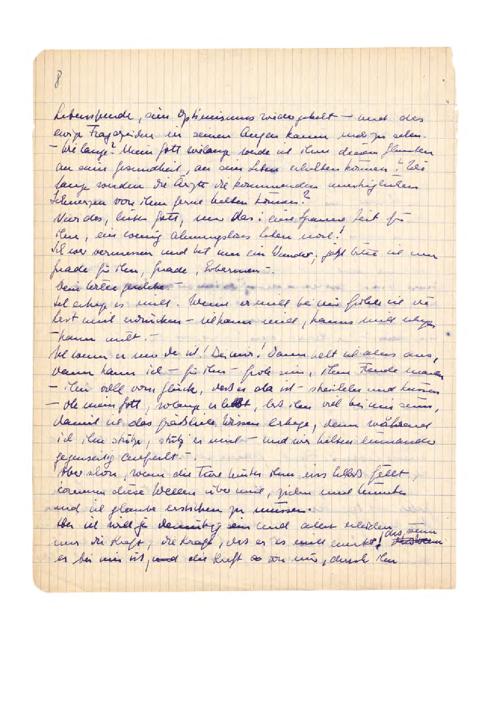 8
Lebensfreude, sein Optimismus wiedergekehrt – und das
ewige Fragezeichen in seinen Augen kaum noch zu sehen.
– Wie lange? Mein Gott wie lange werde ich ihm diesen Glauben
an seine Gesundheit, an sein Leben erhalten können? Wie
lang werden die Ärzte die kommenden unerträglichen
Schmerzen von ihm ferne halten können?
Nur das, lieber Gott, nur das: eine Spanne Zeit für
ihn, ein wenig ahnungsloses Leben noch!
Ich war vermessen und bat um ein Wunder; jetzt bitte ich um
Gnade für ihn, Gnade, Erbarmen –.
Dein Wille geschehe –
Ich ertrag es nicht. Wenn er nicht bei mir
ich kann nicht, kann nicht
kann nicht. –
Wenn er nur da ist! Bei mir! Dann halt ich alles aus,
dann kann ich – für ihn – froh sein, ihm Freude machen
– ihn voll vom Glück, dass er da ist – streicheln und küssen
– oh mein Gott, solang er lebt, lass ihn viel bei mir sein,
damit ich das grässliche Wissen ertrage, denn während
ich ihn stütze, stützt er mich – und wir halten einander
gegenseitig aufrecht –
Aber schon, wenn die Türe hinter ihm ins Schloss fällt,
kommen diese Wellen über mich, ziehen mich hinunter
und ich glaube ersticken zu müssen.
Aber ich will ja demütig sein und alles erleiden,
nur die Kraft, die Kraft, dass er es nicht merkt! dass, wenn
er bei mir ist, und die Kraft so von mir, durch ihn